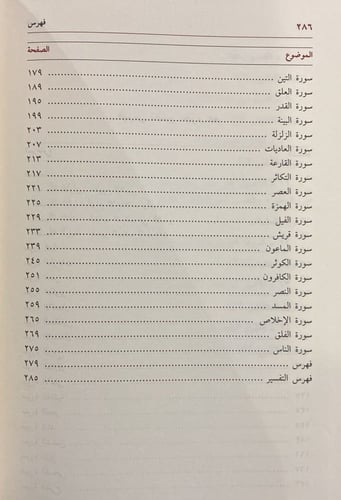 ٢٨٦ فهرس
الموضوع الصفحة
سورة التين ١٧٩
سورة العلق ١٨٩
سورة القدر ١٩٥
سورة البينة ١٩٩
سورة الزلزلة ٢٠٣
سورة العاديات ٢٠٧
سورة القارعة ٢١٣
سورة التكاثر ٢١٧
سورة العصر ٢٢١
سورة الهمزة ٢٢٥
سورة الفيل ٢٢٩
سورة قريش ٢٣٣
سورة الماعون ٢٣٩
سورة الكوثر ٢٤٥
سورة الكافرون ٢٥١
سورة النصر ٢٥٥
سورة المسد ٢٥٩
سورة الإخلاص ٢٦٥
سورة الفلق ٢٦٩
سورة الناس ٢٧٥
فهرس ٢٧٩
فهرس التفسير ٢٨٥